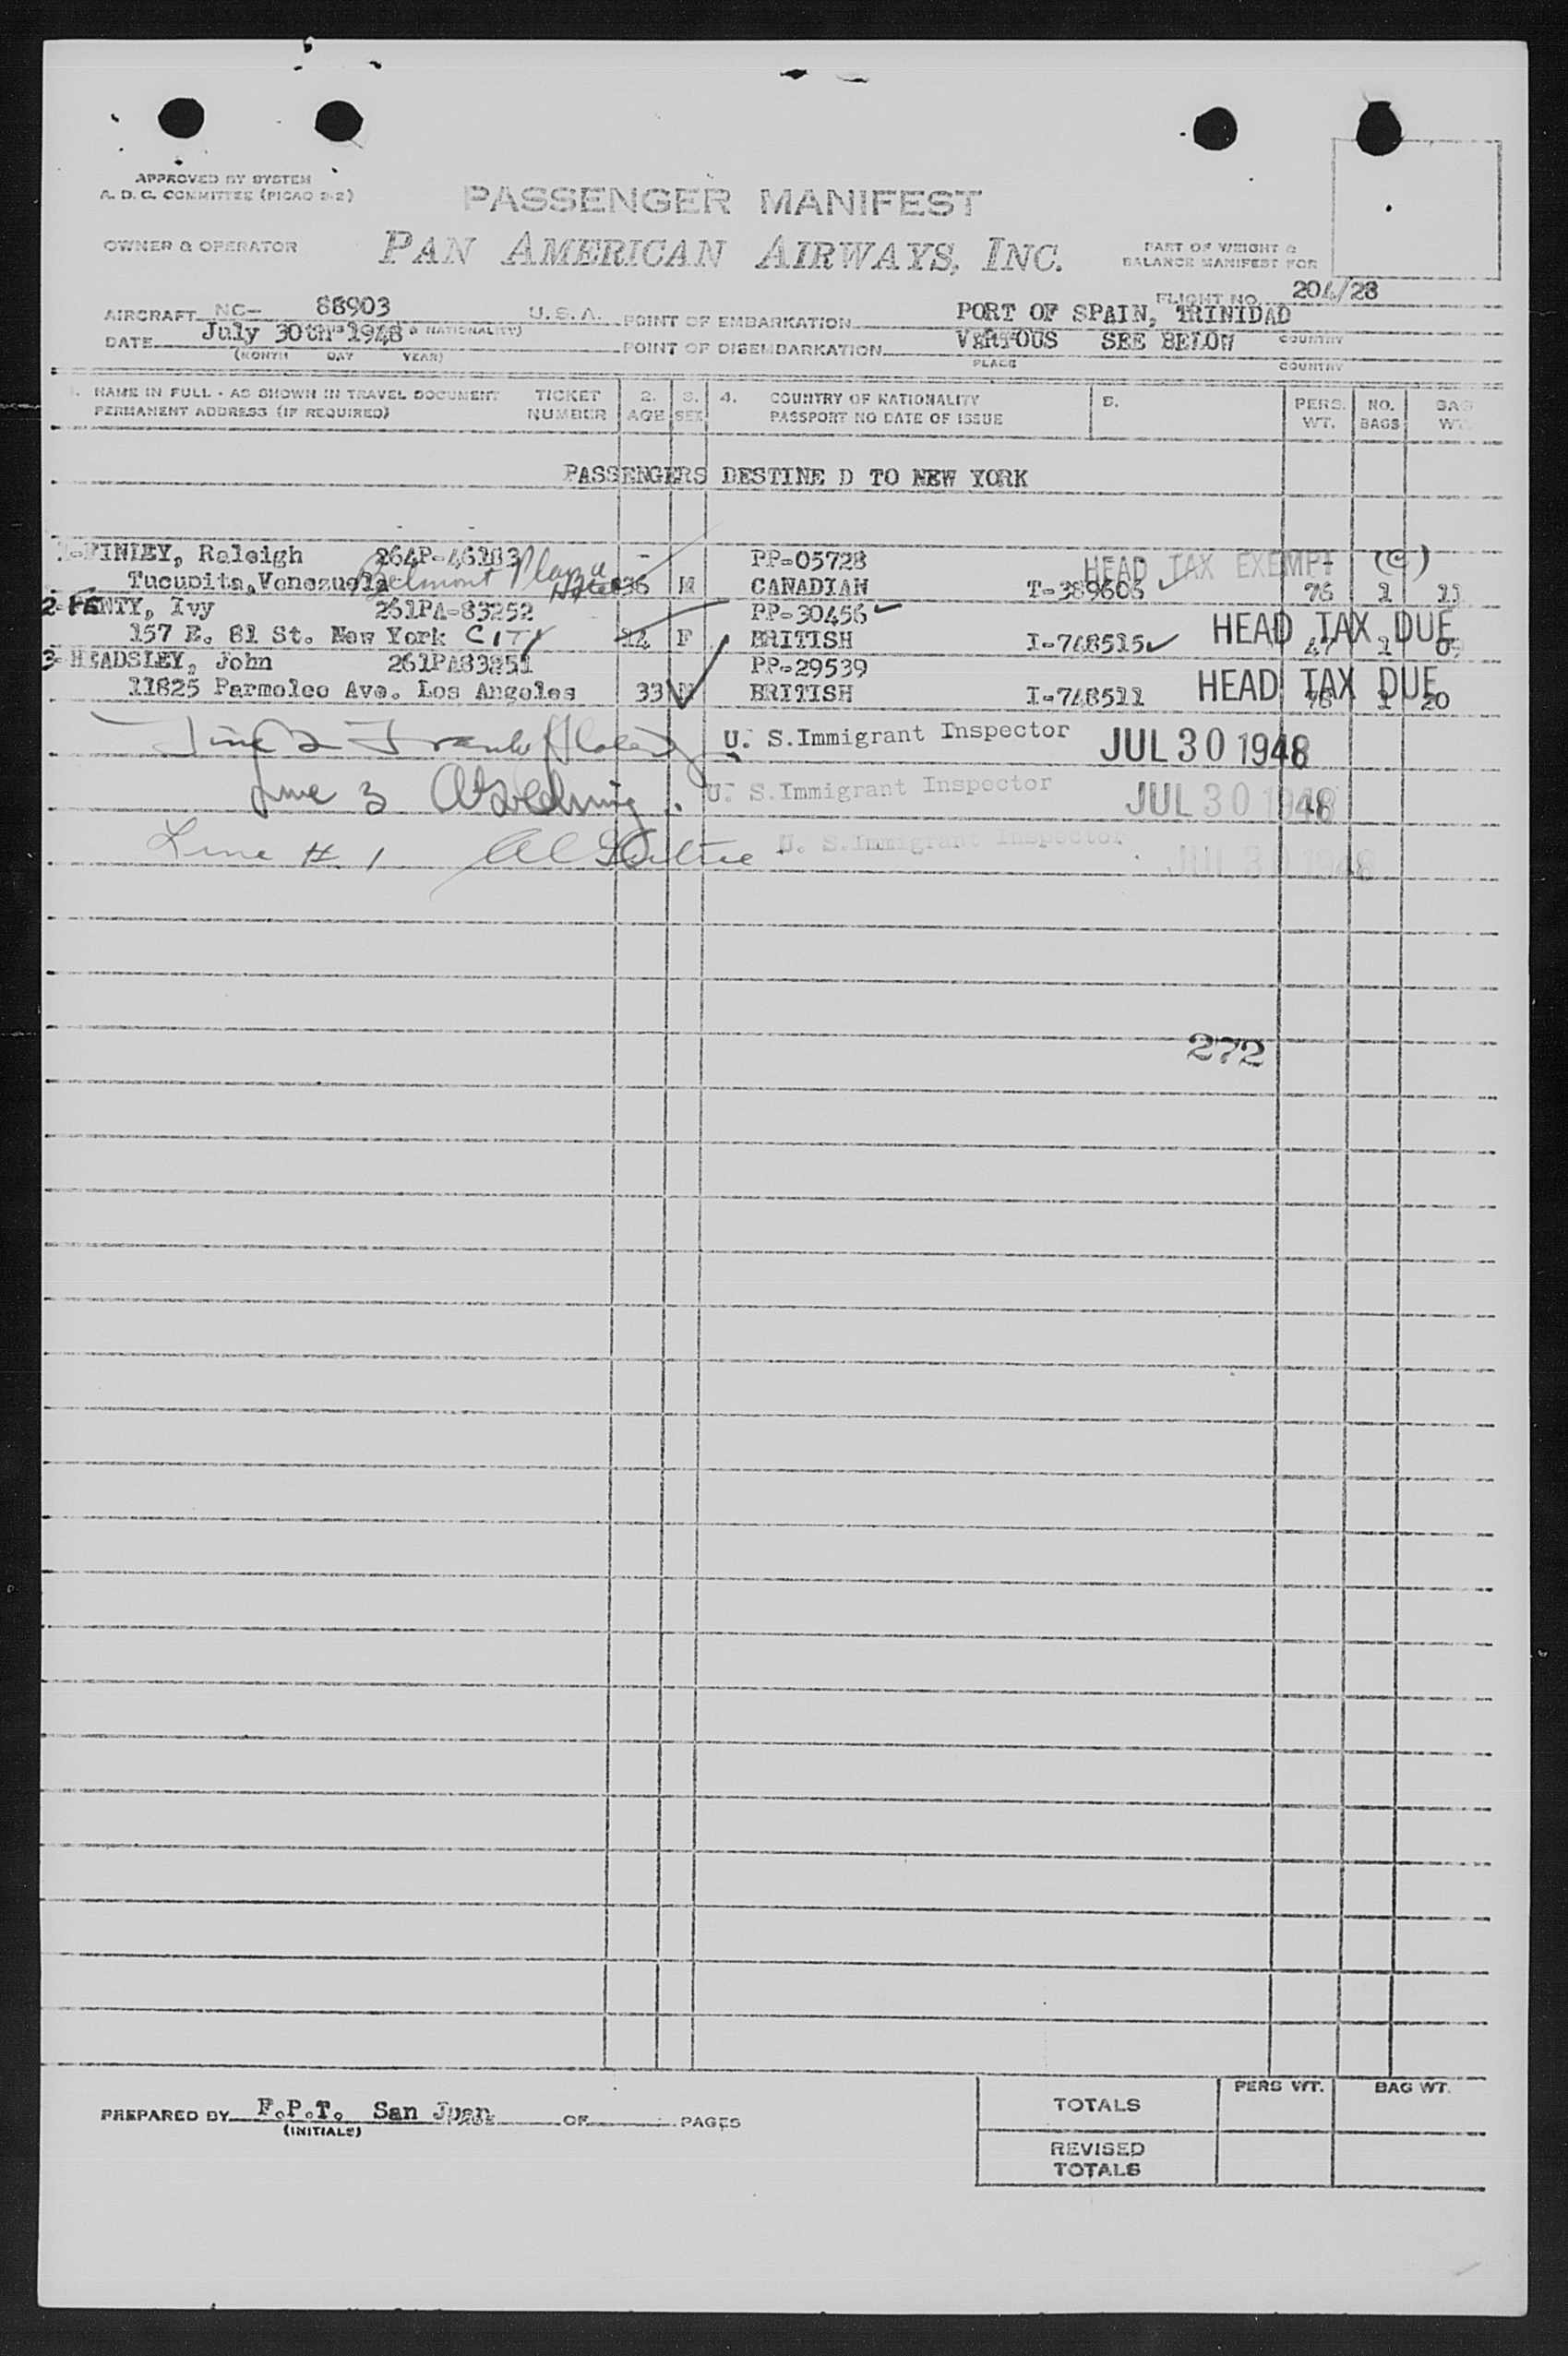 APPROVED BY SYSTEM
A. D. C. COMMITTEE (PICAO 2-2)
PASSENGER MANIFEST
OWNER & OPERATOR
PAN AMERICAN AIRWAYS, INC.
PART OF WEIGHT &
BALANCE MANIFEST FOR
FLIGHT NO. 204/28
AIRCRAFT NC- 88903 U.S.A. POINT OF EMBARKATION PORT OF SPAIN, TRINIDAD
& NATIONALITY)
DATE July 30th 1948 POINT OF DISEMBARKATION VERTOUS SEE BELOW COUNTRY
(MONTH DAY YEAR) PLACE COUNTRY
1. NAME IN FULL - AS SHOWN IN TRAVEL DOCUMENT TICKET 2. 3. 4. COUNTRY OF NATIONALITY 5. PERS. NO. BAG
PERMANENT ADDRESS (IF REQUIRED) NUMBER AGE SEX PASSPORT NO DATE OF ISSUE WT. BAGS WT.
PASSENGERS DESTINE D TO NEW YORK
FINLEY, Raleigh 264P-46183 PP-05728 HEAD TAX EXEMPT (C)
Tucupita, Venezuela Belmont Plaza Hotel 36 M CANADIAN T-389606 76 1 11
2-FENTY, Ivy 261PA-83252 PP-30456
157 E. 81 St. New York CITY F BRITISH I-748515 HEAD TAX DUE 47 1
3-HEADSLEY, John 261PA83251 PP-29539
11825 Parmelee Ave. Los Angeles 33 M BRITISH I-748511 HEAD TAX DUE 76 1 20
Line 2 Frank U. S.Immigrant Inspector JUL 30 1948
Line 3 U. S.Immigrant Inspector JUL 30 1948
Line # 1 U. S.Immigrant Inspector JUL 30 1948
272
PREPARED BY F.P.T. San Juan OF PAGES
(INITIALS)
PERS WT. BAG WT.
TOTALS
REVISED
TOTALS